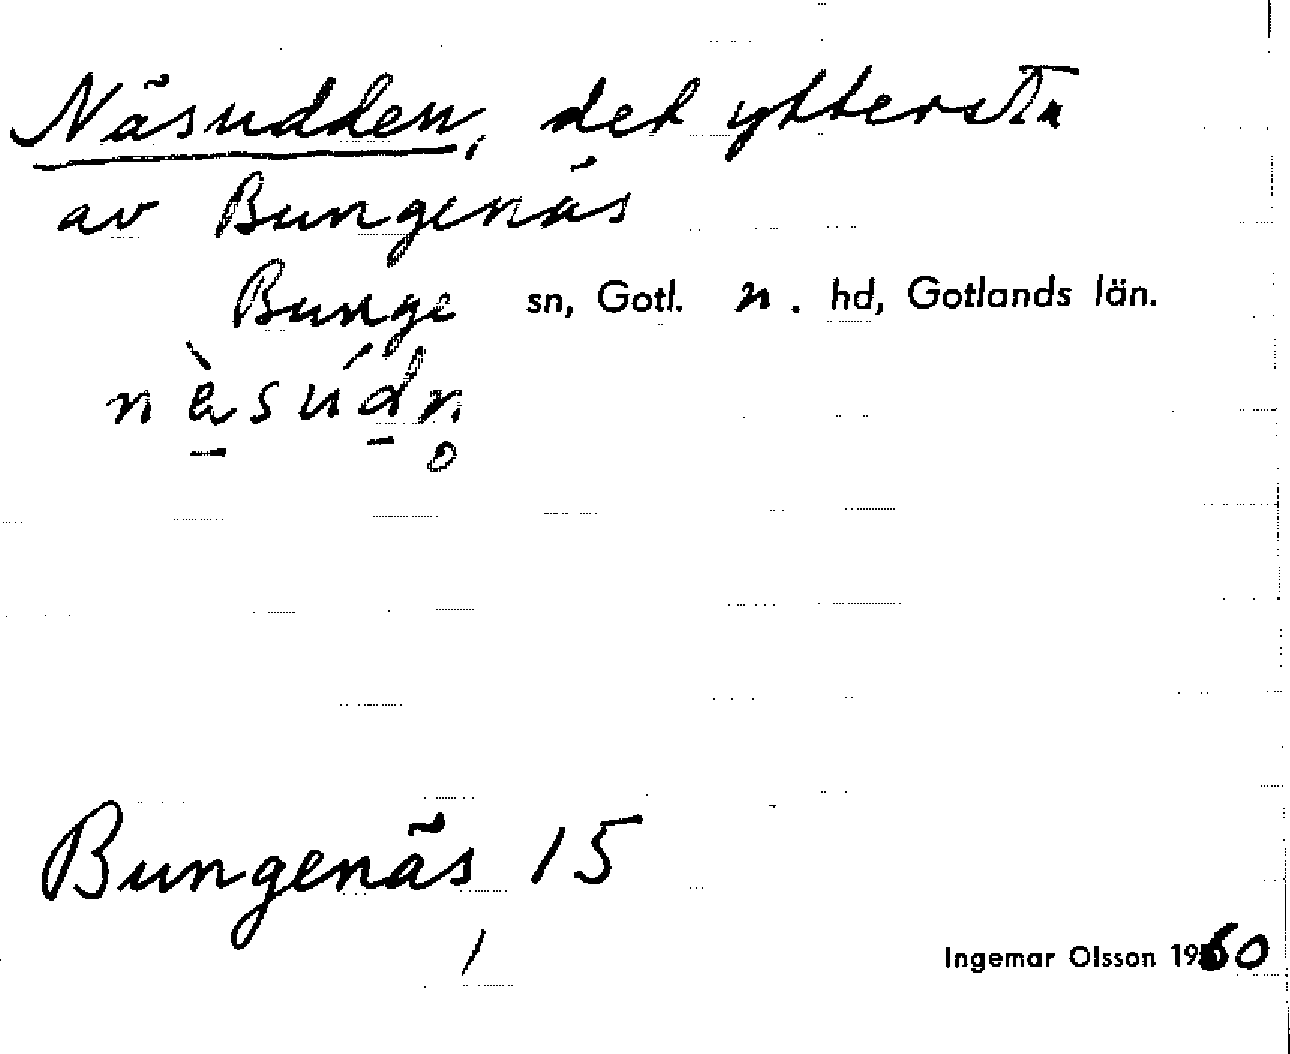 Näsudden, det yttersta
av Bungenäs
Bunge sn, Gotl. n. hd, Gotlands län.
nèsúdn̥
Bungenäs 15
1
Ingemar Olsson 1960